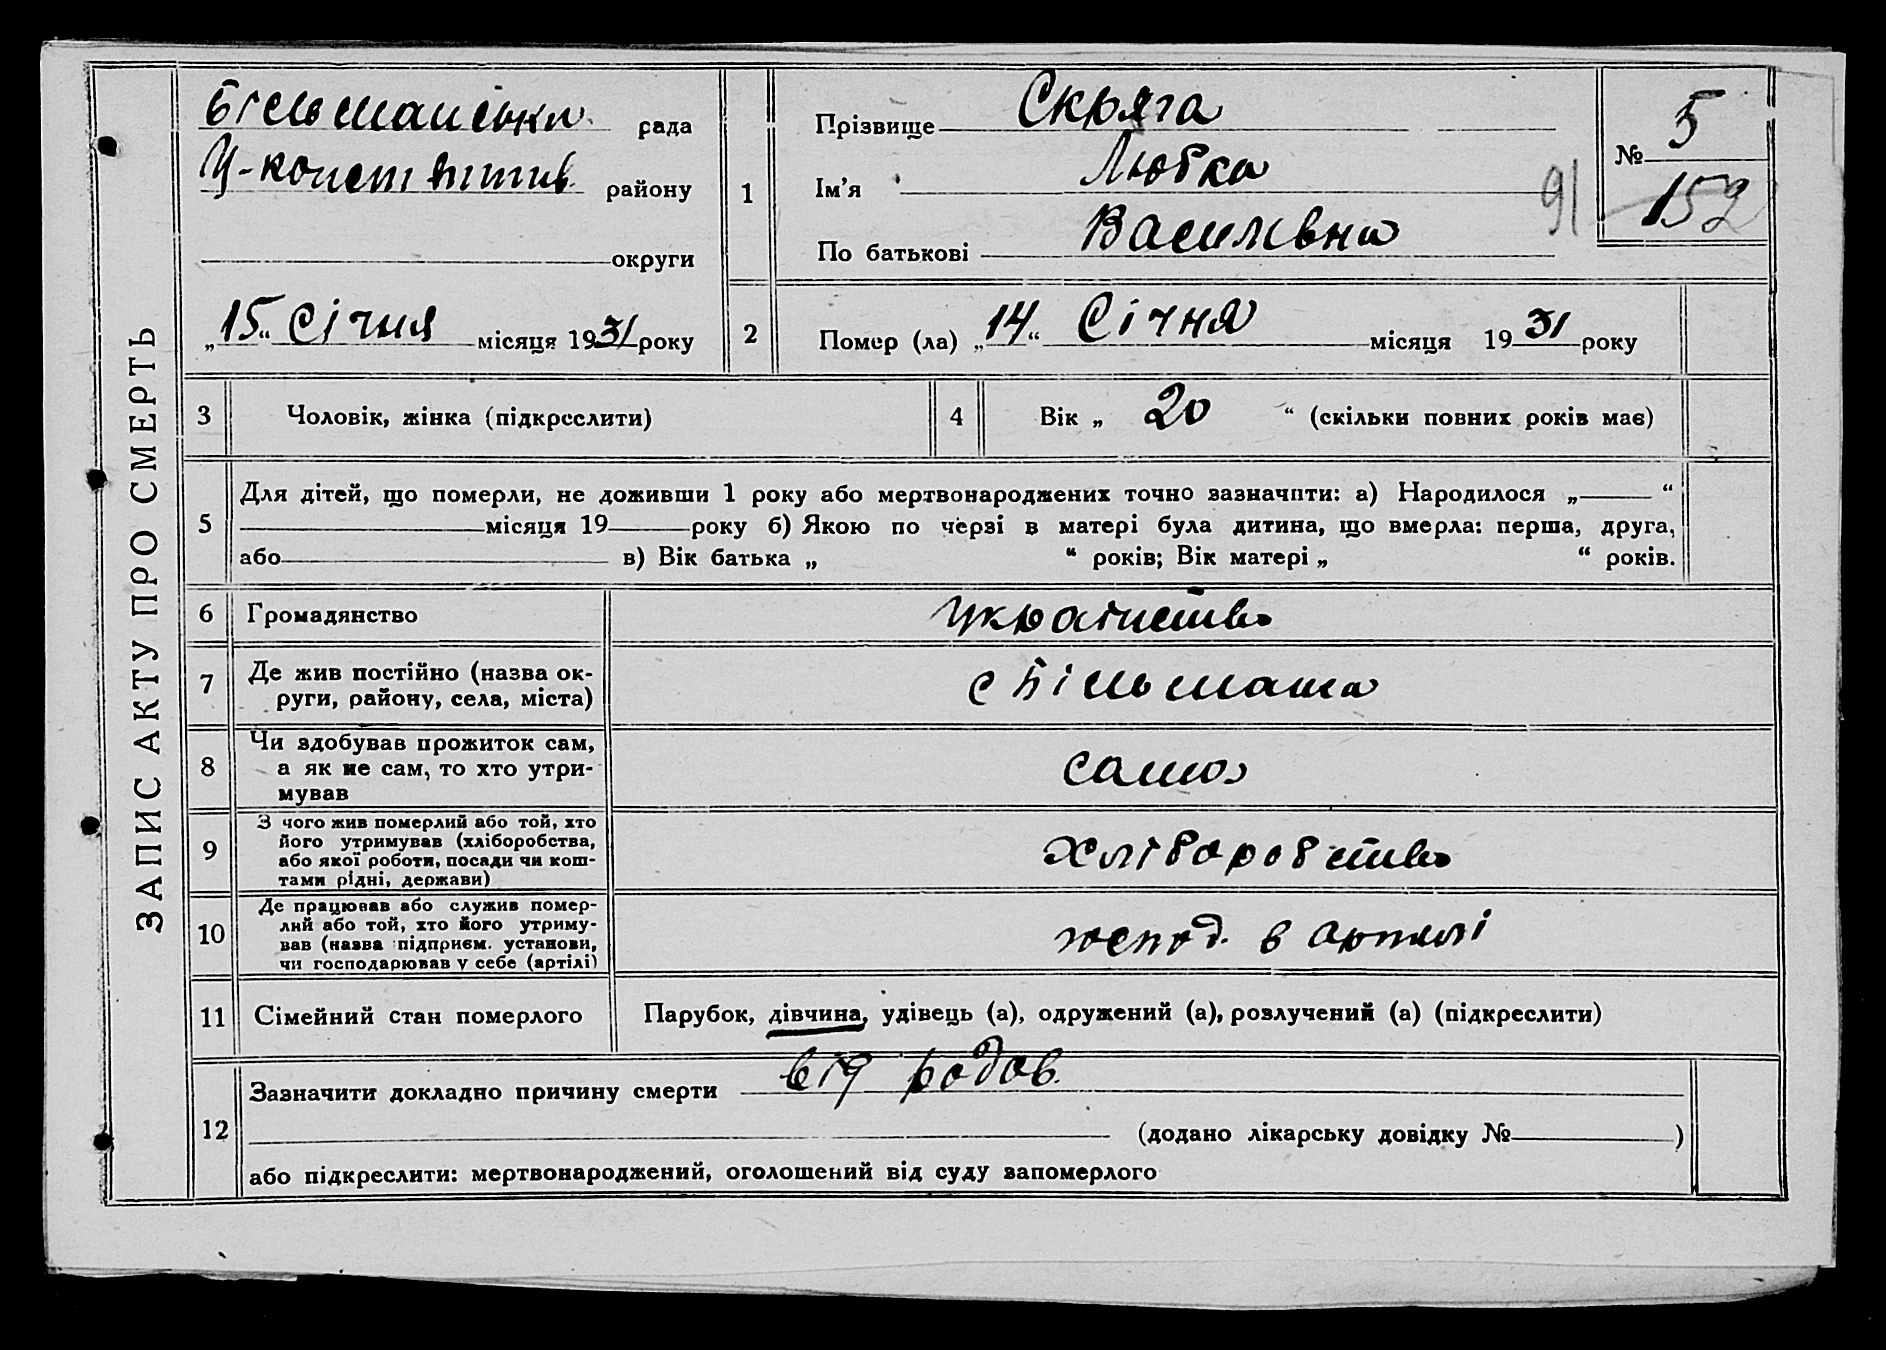 ЗАПИС АКТУ ПРО СМЕРТЬ
Більшанська рада
району
округи
„15“ Січня місяця 1931 року
1
Прізвище Скряга
Ім’я Любка
По батькові Василівна
№ 5
152
91
2
Помер (ла) „14“ Січня місяця 1931 року
3 Чоловік, жінка (підкреслити)
4 Вік „ 20 “ (скільки повних років має)
5
Для дітей, що померли, не доживши 1 року або мертвонароджених точно зазначити: а) Народилося „ “
місяця 19 року б) Якою по черзі в матері була дитина, що вмерла: перша, друга,
або в) Вік батька „ “ років; Вік матері „ “ років.
6 Громадянство
7 Де жив постійно (назва ок-
руги, району, села, міста)
с Більшана
8 Чи здобував прожиток сам,
а як не сам, то хто утри-
мував
сама
9 З чого жив померлий або той, хто
його утримував (хліборобства,
або якої роботи, посади чи кош-
тами рідні, держави)
хліборобство
10 Де працював або служив помер-
лий або той, хто його утриму-
вав (назва підприєм. установи,
чи господарював у себе (артілі)
господ. в артілі
11 Сімейний стан померлого
Парубок, дівчина, удівець (а), одружений (а), розлучений (а) (підкреслити)
12
Зазначити докладно причину смерти від родов
(додано лікарську довідку № )
або підкреслити: мертвонароджений, оголошений від суду запомерлого